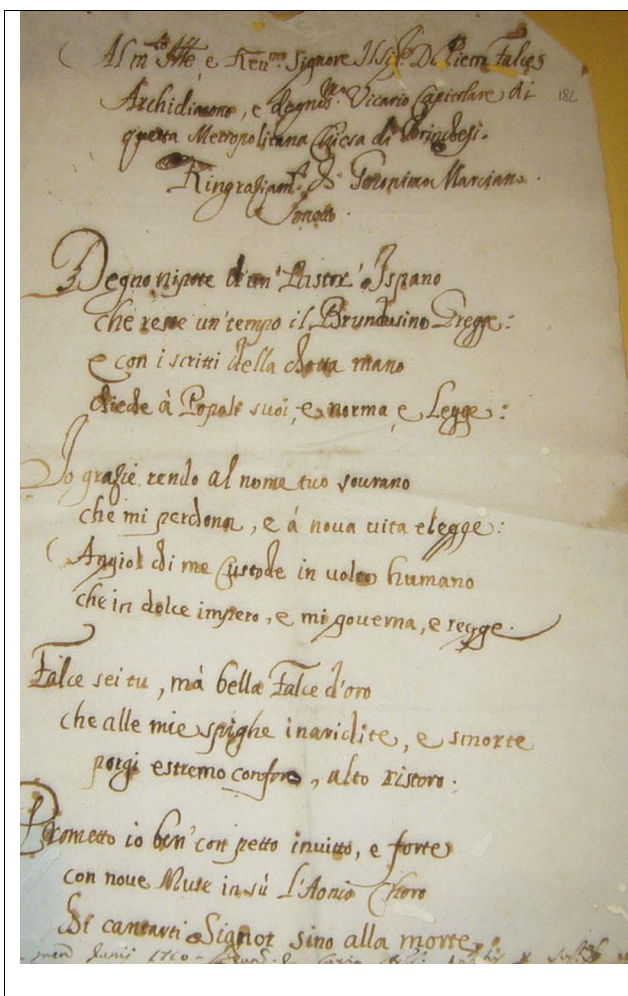 Al m.to Ill.e, e Reu.mo Signore Il Sig.r D. Pietro Falces
Archidiacono, e degnis.mo Vicario Capitolare di
182
questa Metropolitana Chiesa di Brindesi.
Ringraziam.to di Geronimo Marciano.
Sonetto.
Degno nipote d'un' Pastor' Ispano
che resse un' tempo il Brundusino Gregge:
e con i scritti della dotta mano
diede à Popoli suoi, e norma, e Legge:
Io grazie rendo al nome tuo sourano
che mi perdona, e à noua uita elegge:
Angiol di me Custode in volto humano
che in dolce impero, e mi gouerna, e regge.
Falce sei tu, mà bella Falce d'oro
che alle mie spighe inaridite, e smorte
porgi estremo conforto, alto ristoro:
Prometto io ben' con petto inuitto, e forte
con noue Muse in sù l'Aonio Choro
di cantarti Signor sino alla morte.